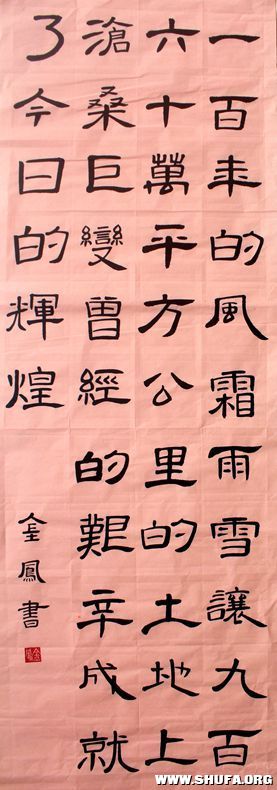 一百年的風霜雨雪讓九百
六十萬平方公里的土地上
滄桑巨變曾經的艱辛成就
了今日的輝煌
金鳳書
WWW.SHUFA.ORG